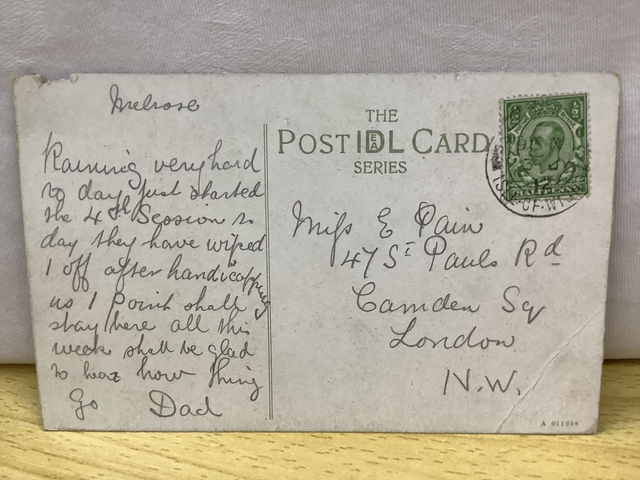 Melrose
Raining very hard
to day just started
the 4th Session to
day they have wiped
1 off after handicapping
us 1 Point shall
stay here all this
week shall be glad
to hear how thing
go Dad
THE
POST IDEAL CARD
SERIES
Miss E Pain
47 St Pauls Rd
Camden Sq
London
N.W.
12
ISLE-OF-WI
HALFPENNY
A 011968